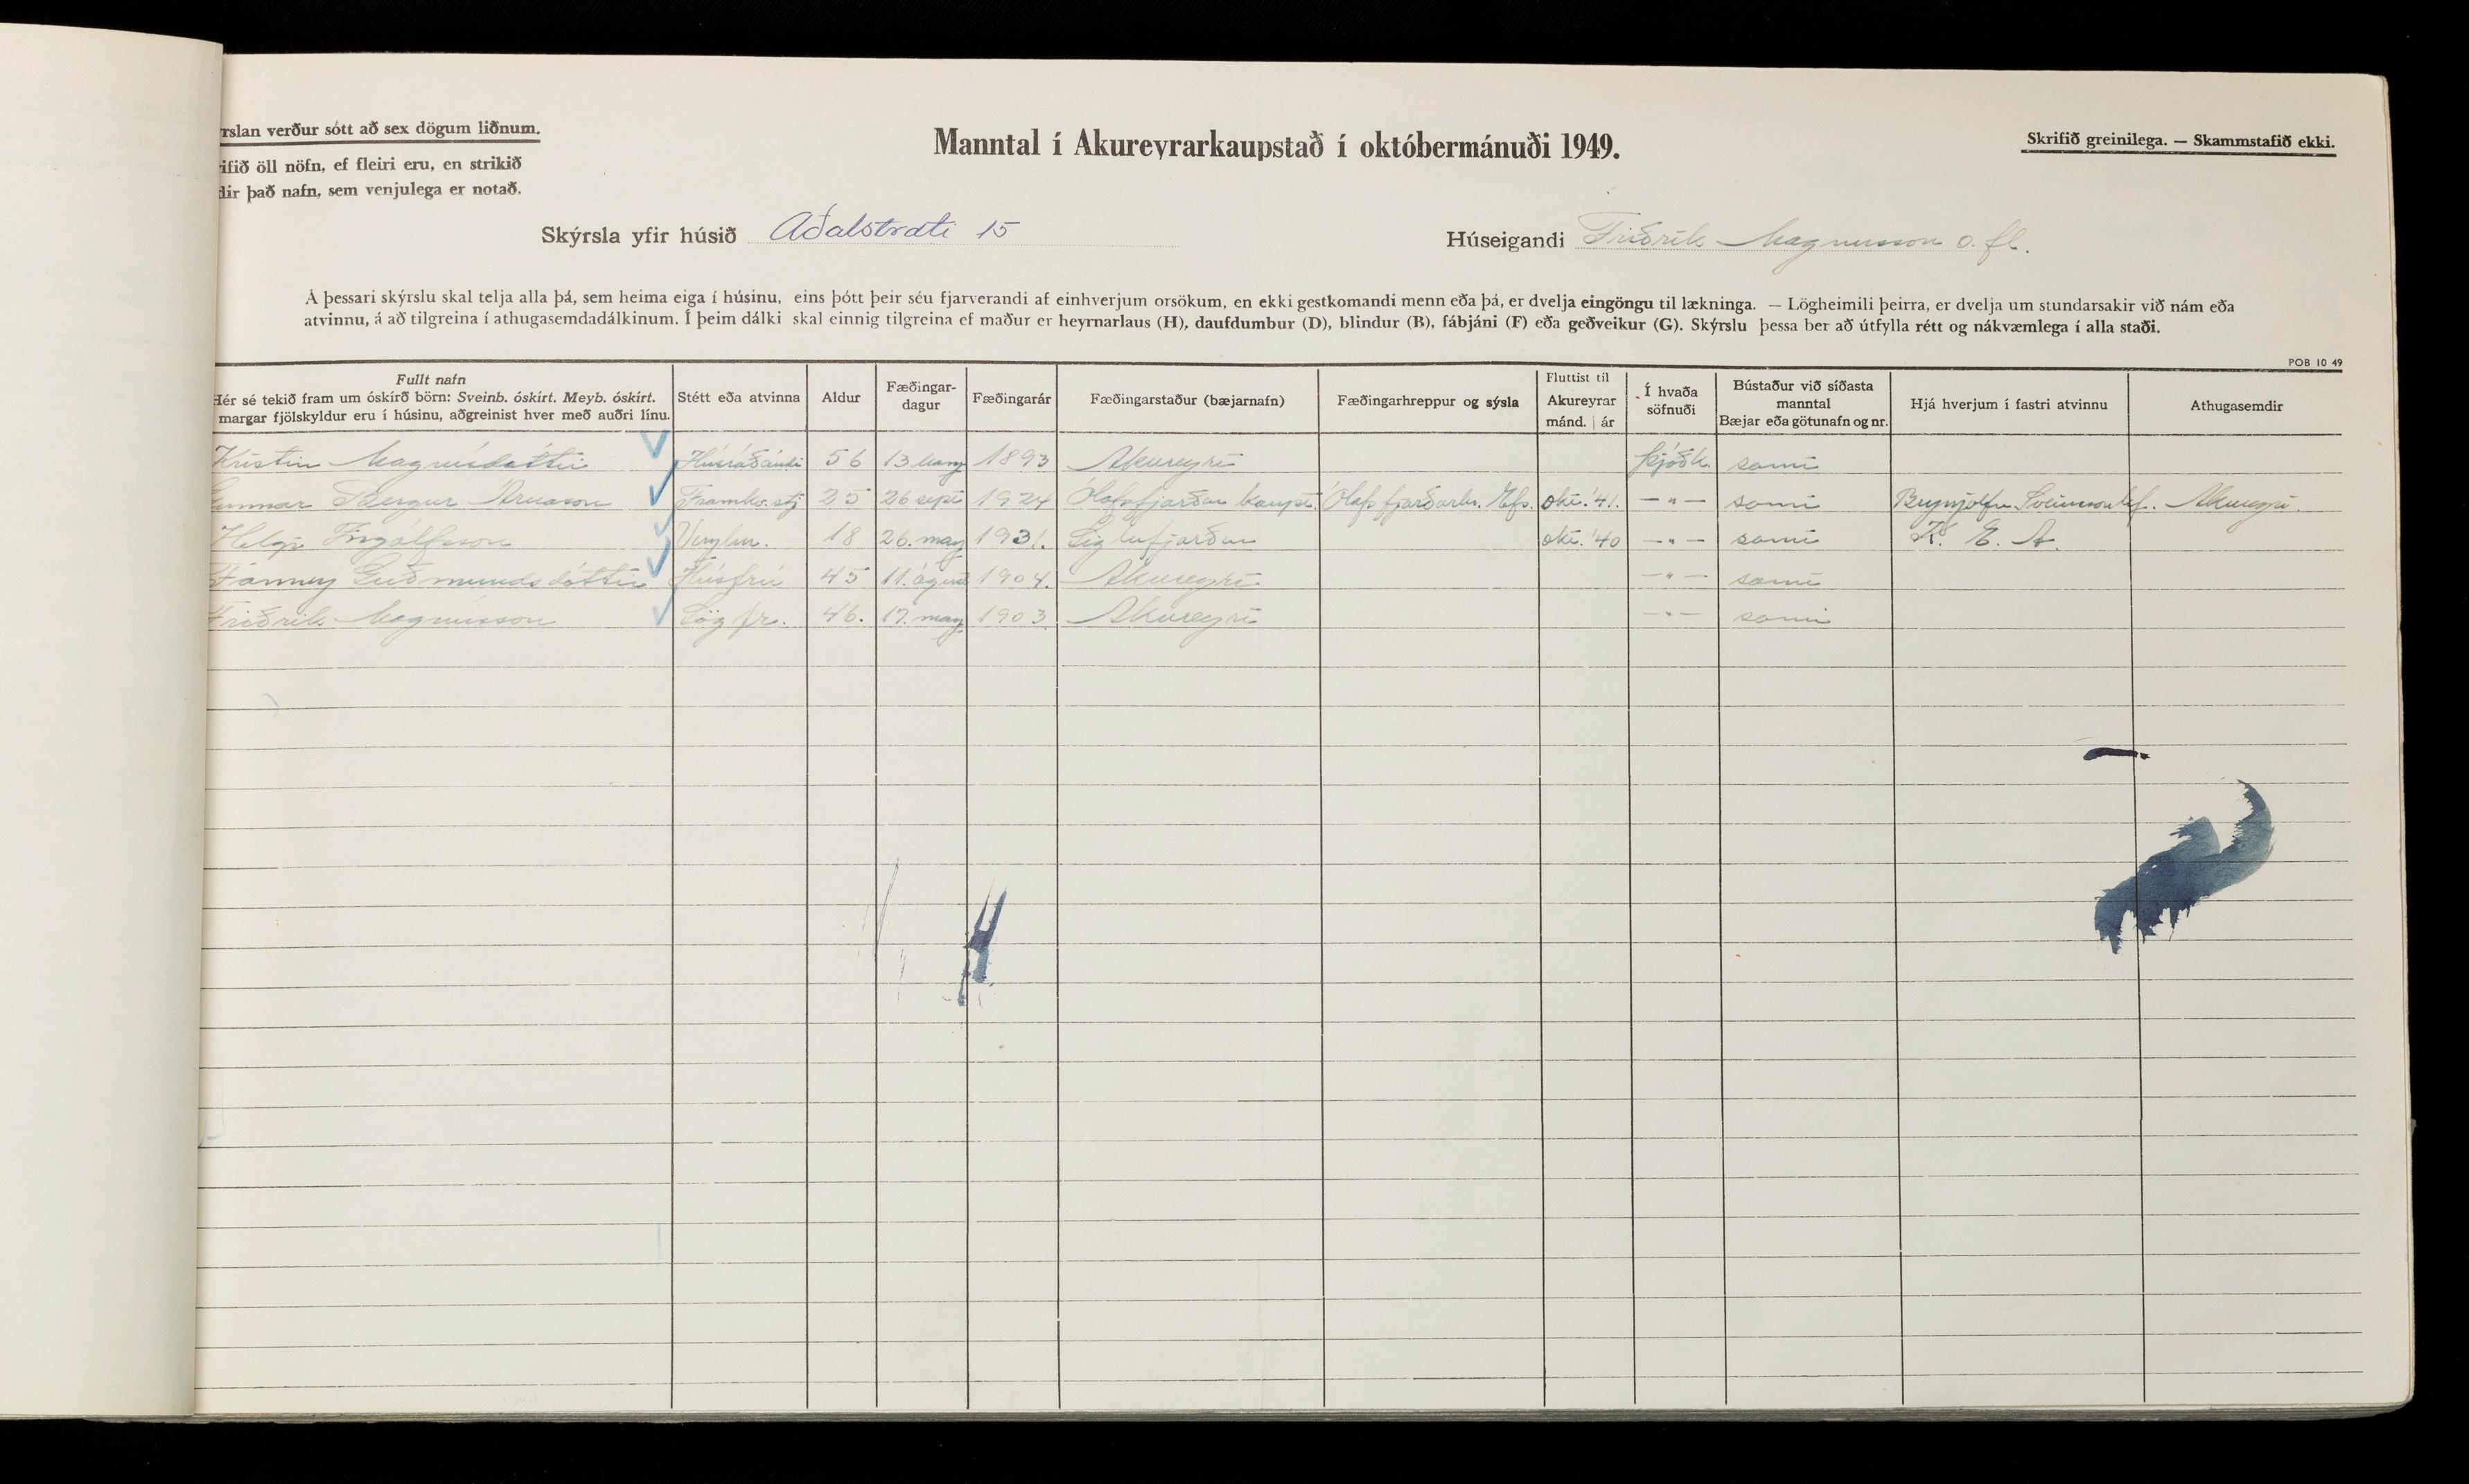 rslan verður sótt að sex dögum liðnum.
ifið öll nöfn, ef fleiri eru, en strikið
dir það nafn, sem venjulega er notað.
Manntal í Akureyrarkaupstað í októbermánuði 1949.
Skrifið greinilega. — Skammstafið ekki.
Skýrsla yfir húsið Aðalstræti 15
Húseigandi Friðrik Magnusson o. fl.
Á þessari skýrslu skal telja alla þá, sem heima eiga í húsinu, eins þótt þeir séu fjarverandi af einhverjum orsökum, en ekki gestkomandi menn eða þá, er dvelja eingöngu til lækninga. — Lögheimili þeirra, er dvelja um stundarsakir við nám eða
atvinnu, á að tilgreina í athugasemdadálkinum. Í þeim dálki skal einnig tilgreina ef maður er heyrnarlaus (H), daufdumbur (D), blindur (B), fábjáni (F) eða geðveikur (G). Skýrslu þessa ber að útfylla rétt og nákvæmlega í alla staði.
POB 10 49
Fullt nafn
Hér sé tekið fram um óskírð börn: Sveinb. óskírt. Meyb. óskírt.
margar fjölskyldur eru í húsinu, aðgreinist hver með auðri línu.
Stétt eða atvinna
Aldur
Fæðingar-
dagur
Fæðingarár
Fæðingarstaður (bæjarnafn)
Fæðingarhreppur og sýsla
Fluttist til
Akureyrar
mánd. | ár
Í hvaða
söfnuði
Bústaður við síðasta
manntal
Bæjar eða götunafn og nr.
Hjá hverjum í fastri atvinnu
Athugasemdir
Kristin Magnúsdóttir Húsráðandi 56 13 1893 Akureyri Þjóðk. sami
Gunnar Bergur Árnason Framkv.stj 25 26 sept 1924 Ólafsfjarðar kaupst. Ólafsfjarðarhr. Efs. okt. '41. — " — sami Brynjólfur Sveinsson hf. Akureyri.
Helgi Ingólfsson Verzlm. 18 26. may 1931. Siglufjarðar okt. '40 — " — sami K. E. A.
Fanney Guðmundsdóttir Húsfrú 45 11. águst 1904. Akureyri — " — sami
Friðrik Magnússon Lögfr. 46. 17. may 1903 Akureyri — " — sami